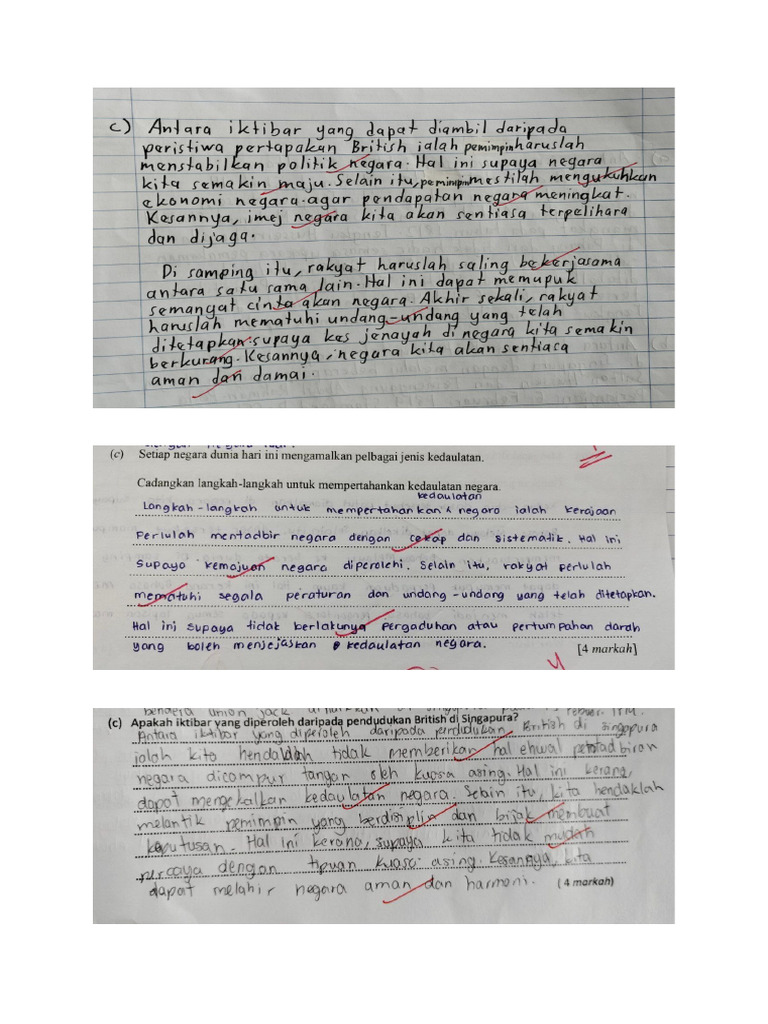 c) Antara iktibar yang dapat diambil daripada
peristiwa pertapakan British ialah pemimpin haruslah
menstabilkan politik negara. Hal ini supaya negara
kita semakin maju. Selain itu, pemimpin mestilah mengukuhkan
ekonomi negara. agar pendapatan negara meningkat.
Kesannya, imej negara kita akan sentiasa terpelihara
dan dijaga.
Di samping itu, rakyat haruslah saling bekerjasama
antara satu sama lain. Hal ini dapat memupuk
semangat cinta akan negara. Akhir sekali, rakyat
haruslah mematuhi undang-undang yang telah
ditetapkan. supaya kes jenayah di negara kita semakin
berkurang. Kesannya, negara kita akan sentiasa
aman dan damai.
(c) Setiap negara dunia hari ini mengamalkan pelbagai jenis kedaulatan.
Cadangkan langkah-langkah untuk mempertahankan kedaulatan negara.
kedaulatan
Langkah-langkah untuk mempertahankan negara ialah kerajaan
perlulah mentadbir negara dengan cekap dan sistematik. Hal ini
supaya kemajuan negara diperolehi. Selain itu, rakyat perlulah
mematuhi segala peraturan dan undang-undang yang telah ditetapkan.
Hal ini supaya tidak berlakunya pergaduhan atau pertumpahan darah
yang boleh menjejaskan kedaulatan negara. [4 markah]
bendera union jack
(c) Apakah iktibar yang diperoleh daripada pendudukan British di Singapura?
Antara iktibar yang diperoleh daripada pendudukan British di Singapura
ialah kita hendaklah tidak memberikan hal ehwal
negara dicampur tangan oleh kuasa asing. Hal ini kerana,
dapat mengekalkan kedaulatan negara. Selain itu, kita hendaklah
melantik pemimpin yang berdisiplin dan bijak membuat
keputusan. Hal ini kerana, supaya kita tidak mudah
percaya dengan tipuan kuasa asing. Kesannya, kita
dapat melahir negara aman dan harmoni. (4 markah)